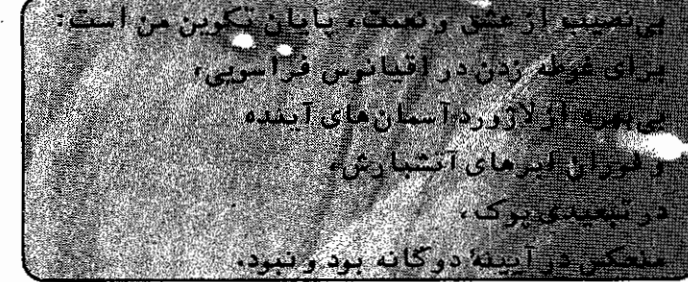 بی‌نصیب از عشق و نعمت، پایان تکوین من است:
برای غوطه زدن در اقیانوس فراسویی،
بی‌بهره از لاژورد آسمان‌های آینده
و فوران ابرهای آتشبارش،
در تبعیدی پوک،
منعکس در آیینهٔ دوگانه بود و نبود.